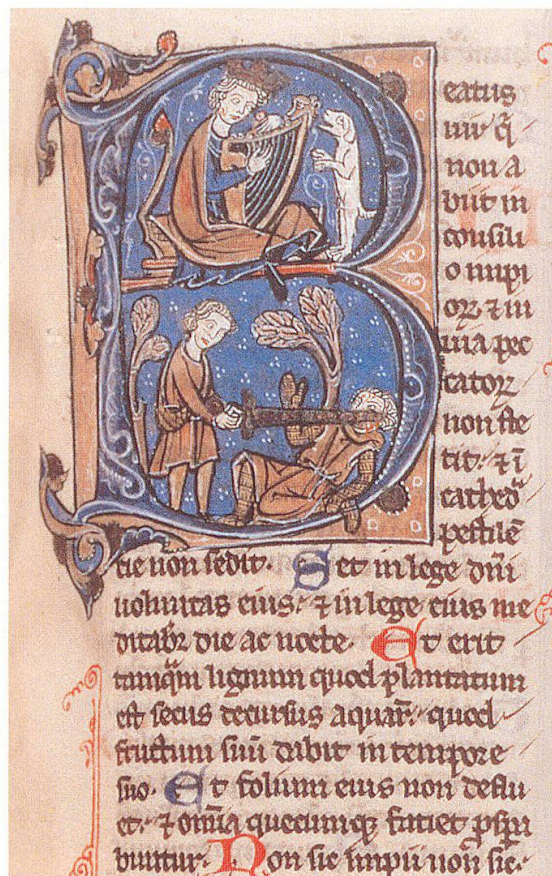 Beatus
uir q̃
non a
biit in
consili
o impi
oꝝ ⁊ in
uia pec
catoꝝ
non ste
tit. ⁊ ĩ
cathed̃
pestilẽ
tie non sedit. Set in lege dñi
uoluntas eius. ⁊ in lege eius me
ditabr̃ die ac nocte. Et erit
tamq̃m lignum quod plantatum
est secus decursus aquar̃. quod
fructum suũ dabit in tempore
suo. Et folium eius non deflu
et. ⁊ om̃ia quecumqꝫ faciet ꝓspa
buntur. Non sic impii non sic.